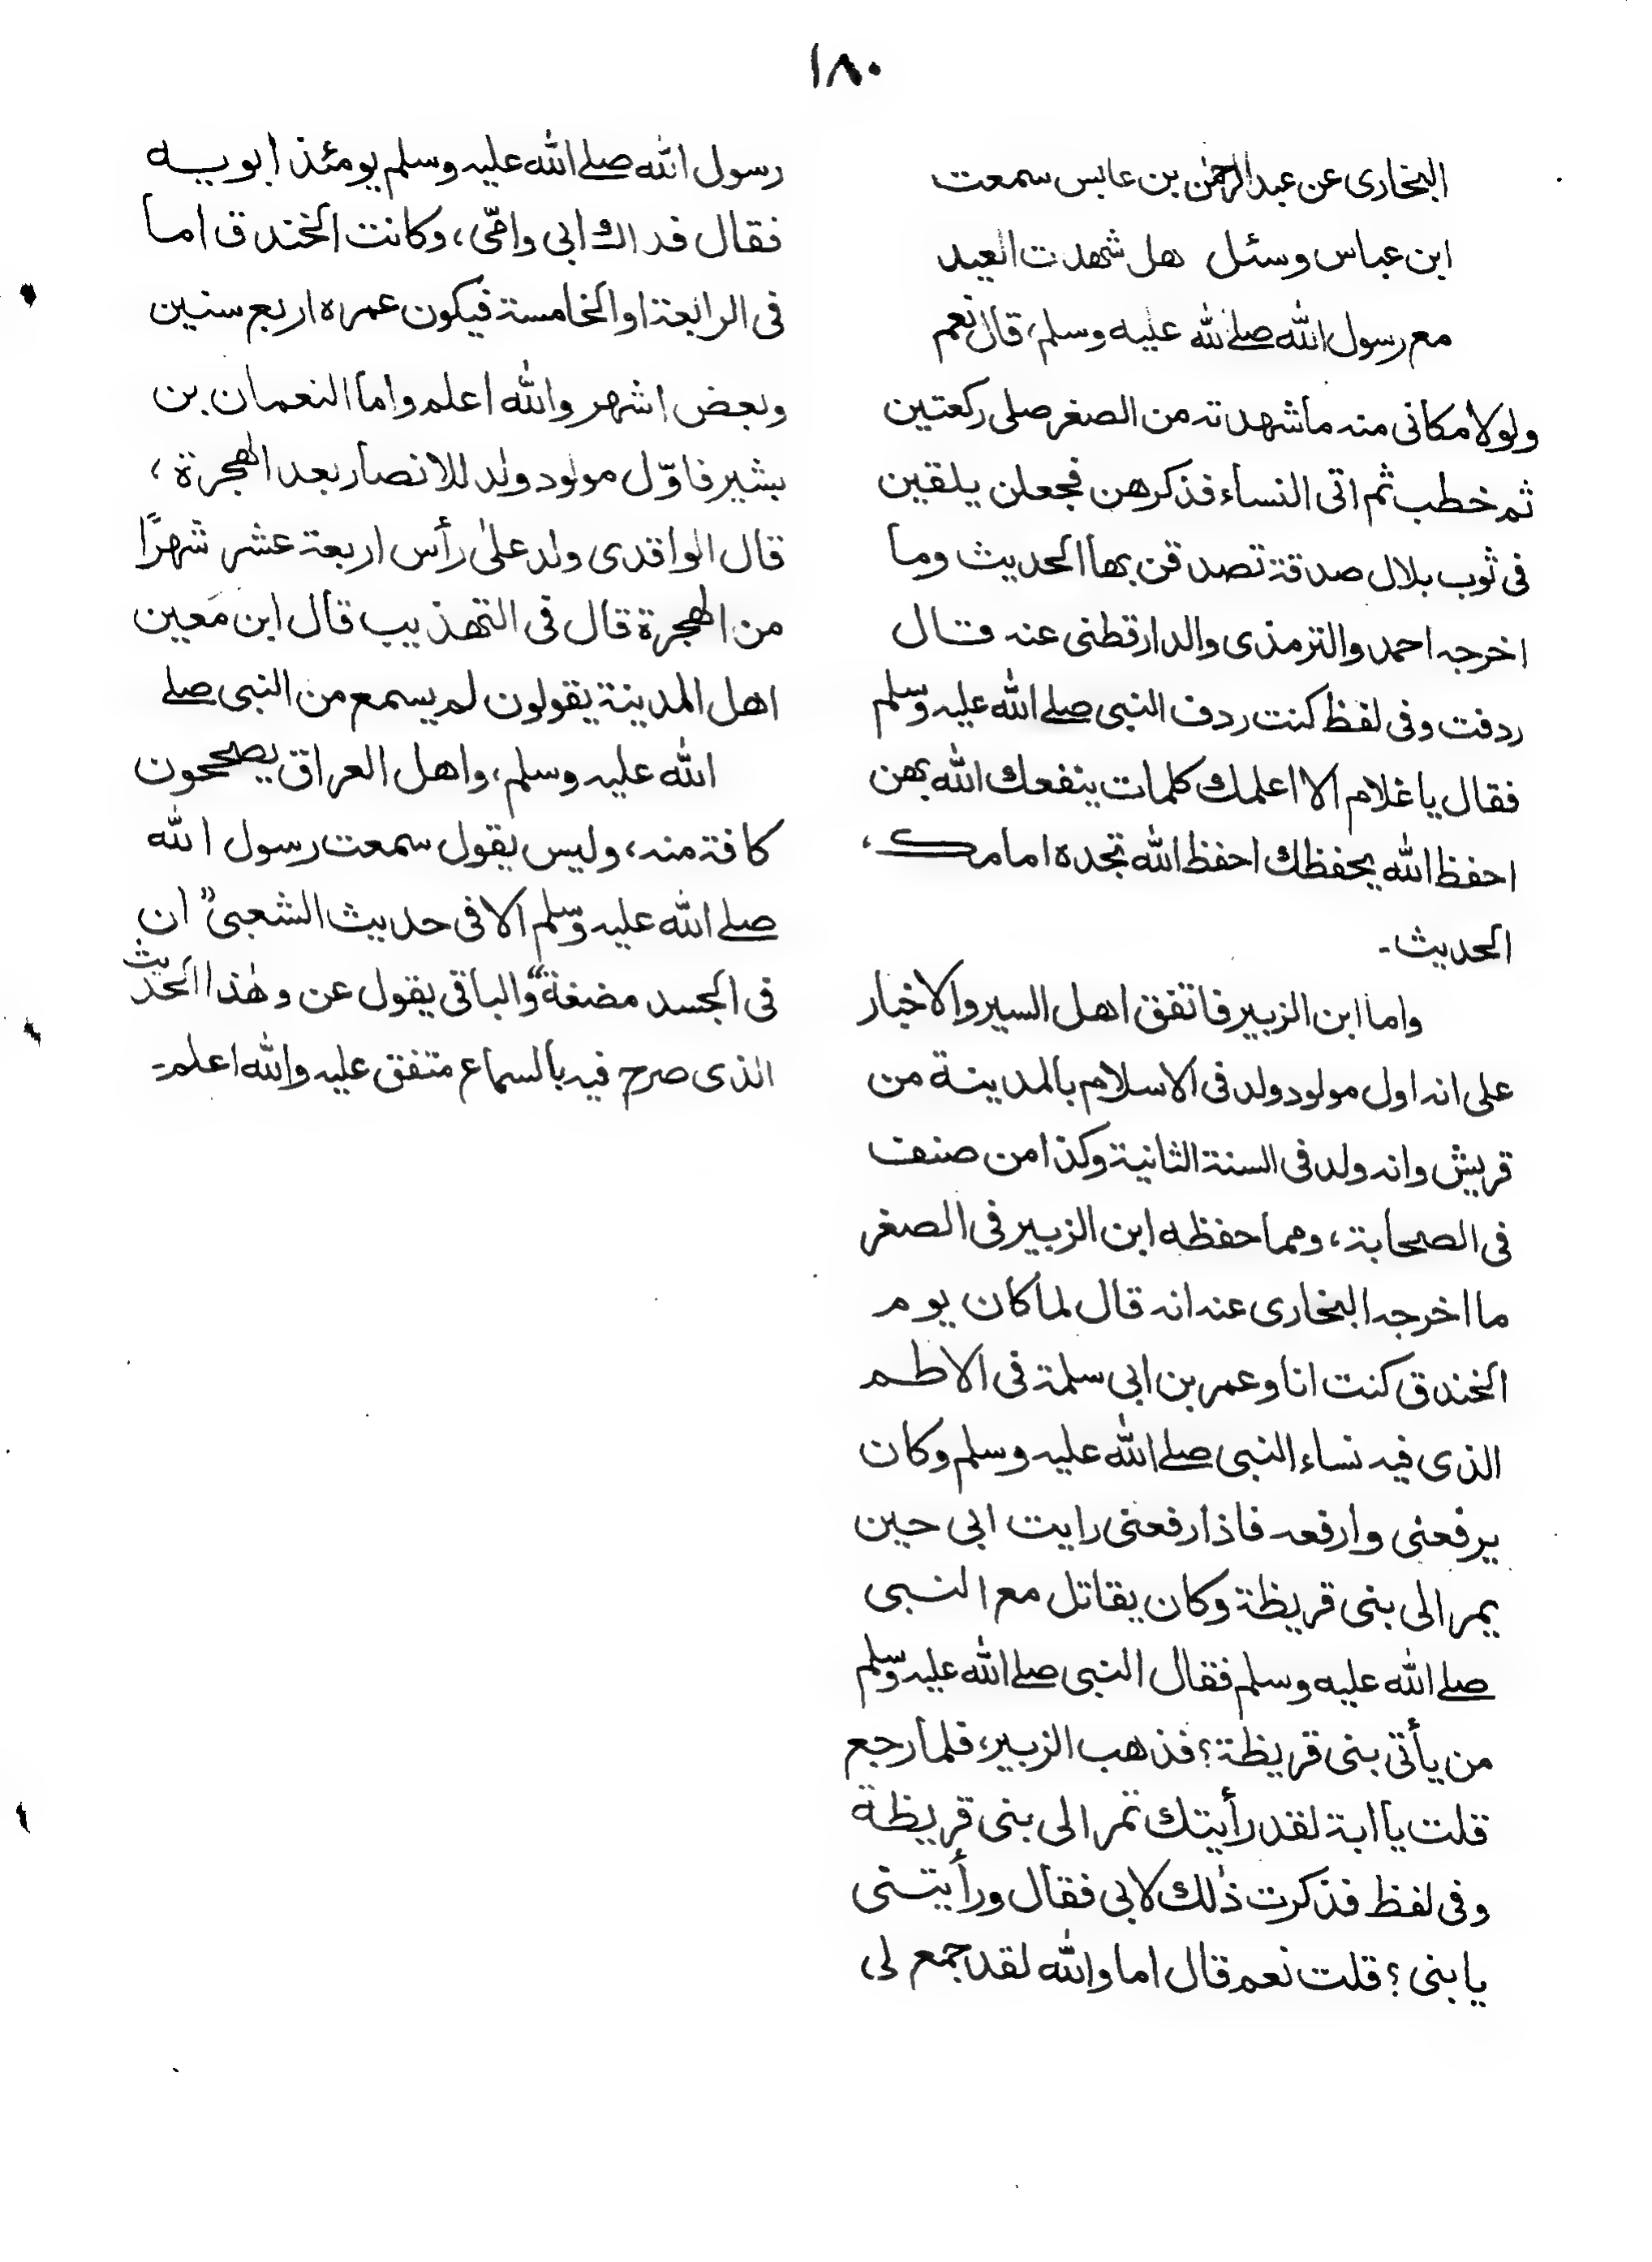 ١٨٠
البخاری عن عبد الرحمٰن بن عابس سمعت
ابن عباس وسئل هل شهدت العید
مع رسول الله صلے الله علیه وسلم، قال نعم
ولولا مکانی منه ما شهدته من الصغر صلی رکعتین
ثم خطب ثم اتی النساء فذکرهن فجعلن یلقین
فی ثوب بلال صدقة تصدقن بها الحدیث وما
اخرجه احمد والترمذی والدارقطنی عنه قال
ردفت وفی لفظ کنت ردف النبی صلے الله علیه وسلم
فقال یا غلام الا اعلمك کلمات ینفعك الله بهن
احفظ الله یحفظك احفظ الله تجده امامك،
الحدیث۔
واما ابن الزبیر فاتفق اهل السیر والاخبار
علی انه اول مولود ولد فی الاسلام بالمدینة من
قریش وانه ولد فی السنة الثانیة وکذا من صنف
فی الصحابة، ومما حفظه ابن الزبیر فی الصغر
ما اخرجه البخاری عنه انه قال لما کان یوم
الخندق کنت انا وعمر بن ابی سلمة فی الاطم
الذی فیه نساء النبی صلے الله علیه وسلم وکان
یرفعنی وارفعه فاذا رفعنی رایت ابی حین
یمر الی بنی قریظة وکان یقاتل مع النبی
صلے الله علیه وسلم فقال النبی صلے الله علیه وسلم
من یأتی بنی قریظة؟ فذهب الزبیر، فلما رجع
قلت یا ابة لقد رأیتك تمر الی بنی قریظة
وفی لفظ فذکرت ذٰلك لابی فقال ورأیتنی
یا بنی؟ قلت نعم قال اما والله لقد جمع لی
رسول الله صلے الله علیه وسلم یومئذ ابویه
فقال فداك ابی وامّی، وکانت الخندق اما
فی الرابعة او الخامسة فیکون عمره اربع سنین
وبعض اشهر والله اعلم واما النعمان بن
بشیر فاوّل مولود ولد للانصار بعد الهجرة،
قال الواقدی ولد علیٰ رأس اربعة عشر شهرًا
من الهجرة قال فی التهذیب قال ابن مَعین
اهل المدینة یقولون لم یسمع من النبی صلے
الله علیه وسلم، واهل العراق یصححون
کافة منه، ولیس یقول سمعت رسول الله
صلے الله علیه وسلم الا فی حدیث الشعبی "ان
فی الجسد مضغة" والباقی یقول عن وهٰذا الحدیث
الذی صرح فیه بالسماع متفق علیه والله اعلم۔